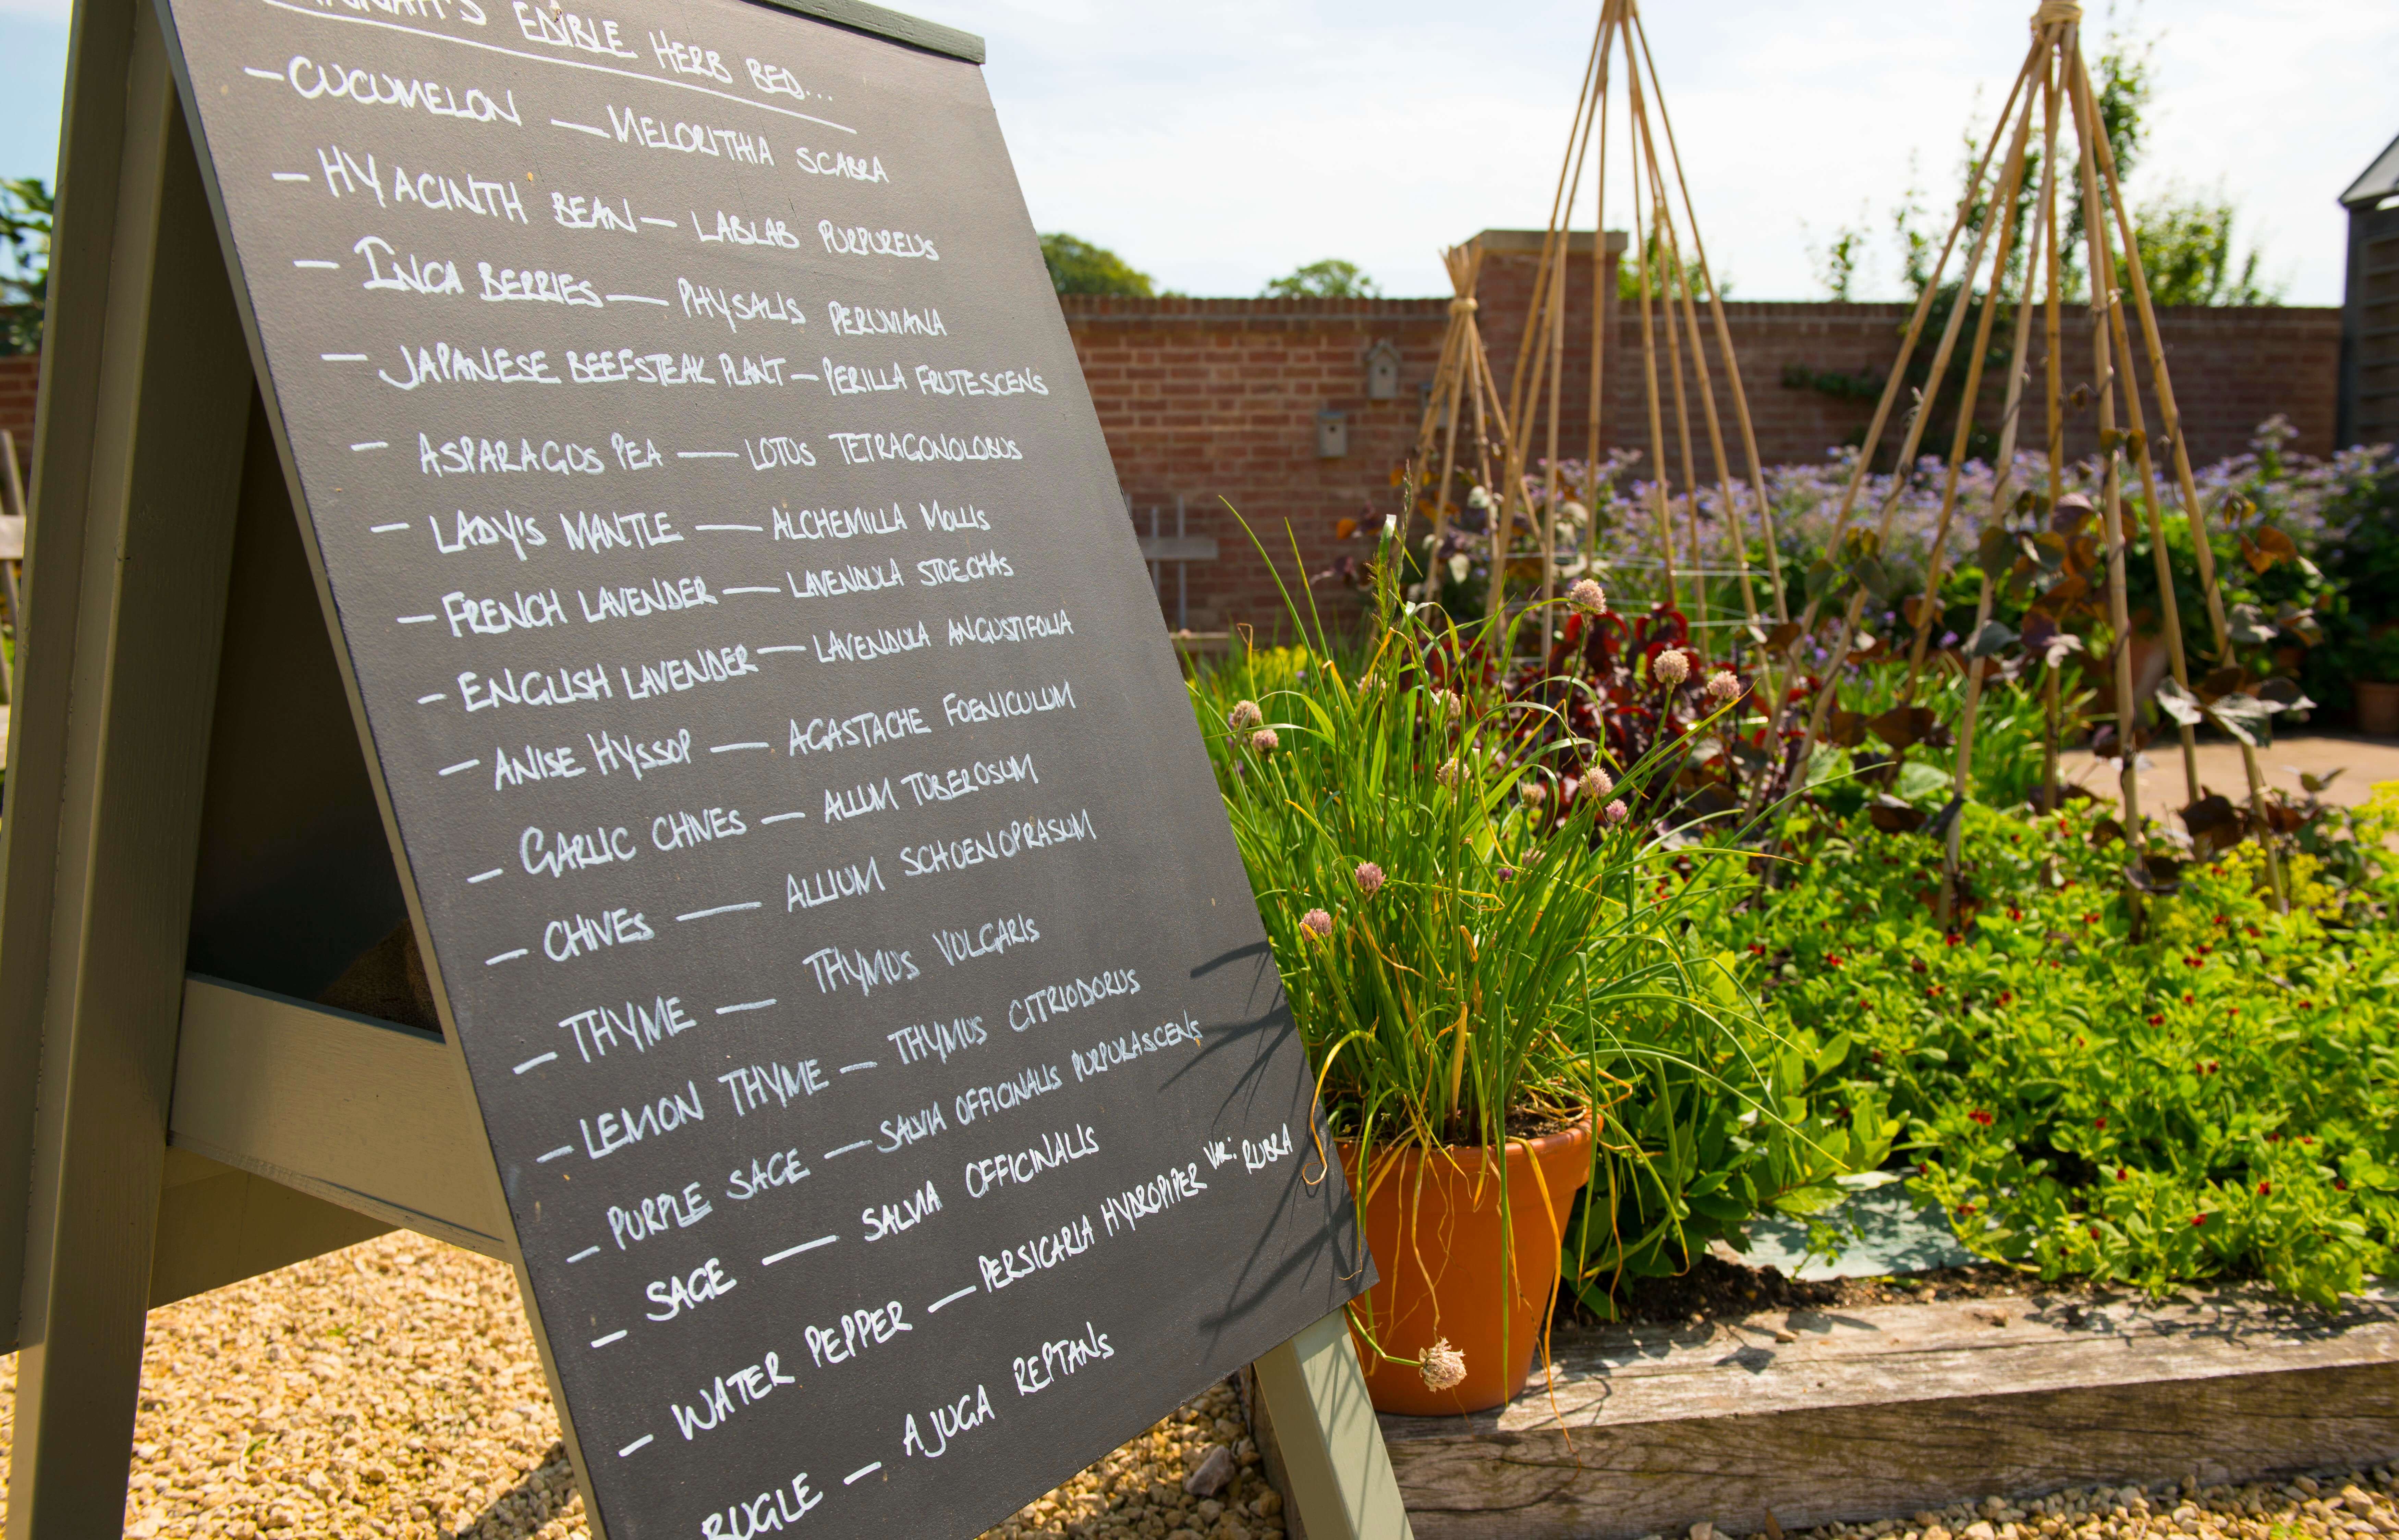 EDIBLE HERB BED...
– CUCUMELON — MELORITHIA SCABRA
– HYACINTH BEAN — LABLAB PURPUREUS
– INCA BERRIES — PHYSALIS PERUVIANA
– JAPANESE BEEFSTEAK PLANT – PERILLA FRUTESCENS
– ASPARAGUS PEA — LOTUS TETRAGONOLOBUS
– LADY'S MANTLE — ALCHEMILLA MOLLIS
– FRENCH LAVENDER — LAVENDULA STOECHAS
– ENGLISH LAVENDER — LAVENDULA ANGUSTIFOLIA
– ANISE HYSSOP — AGASTACHE FOENICULUM
– GARLIC CHIVES — ALLIUM TUBEROSUM
– CHIVES — ALLIUM SCHOENOPRASUM
– THYME — THYMUS VULGARIS
– LEMON THYME — THYMUS CITRIODORUS
– PURPLE SAGE — SALVIA OFFICINALIS PURPURASCENS
– SAGE — SALVIA OFFICINALIS
– WATER PEPPER — PERSICARIA HYDROPIPER VAR: RUBRA
BUGLE — AJUGA REPTANS